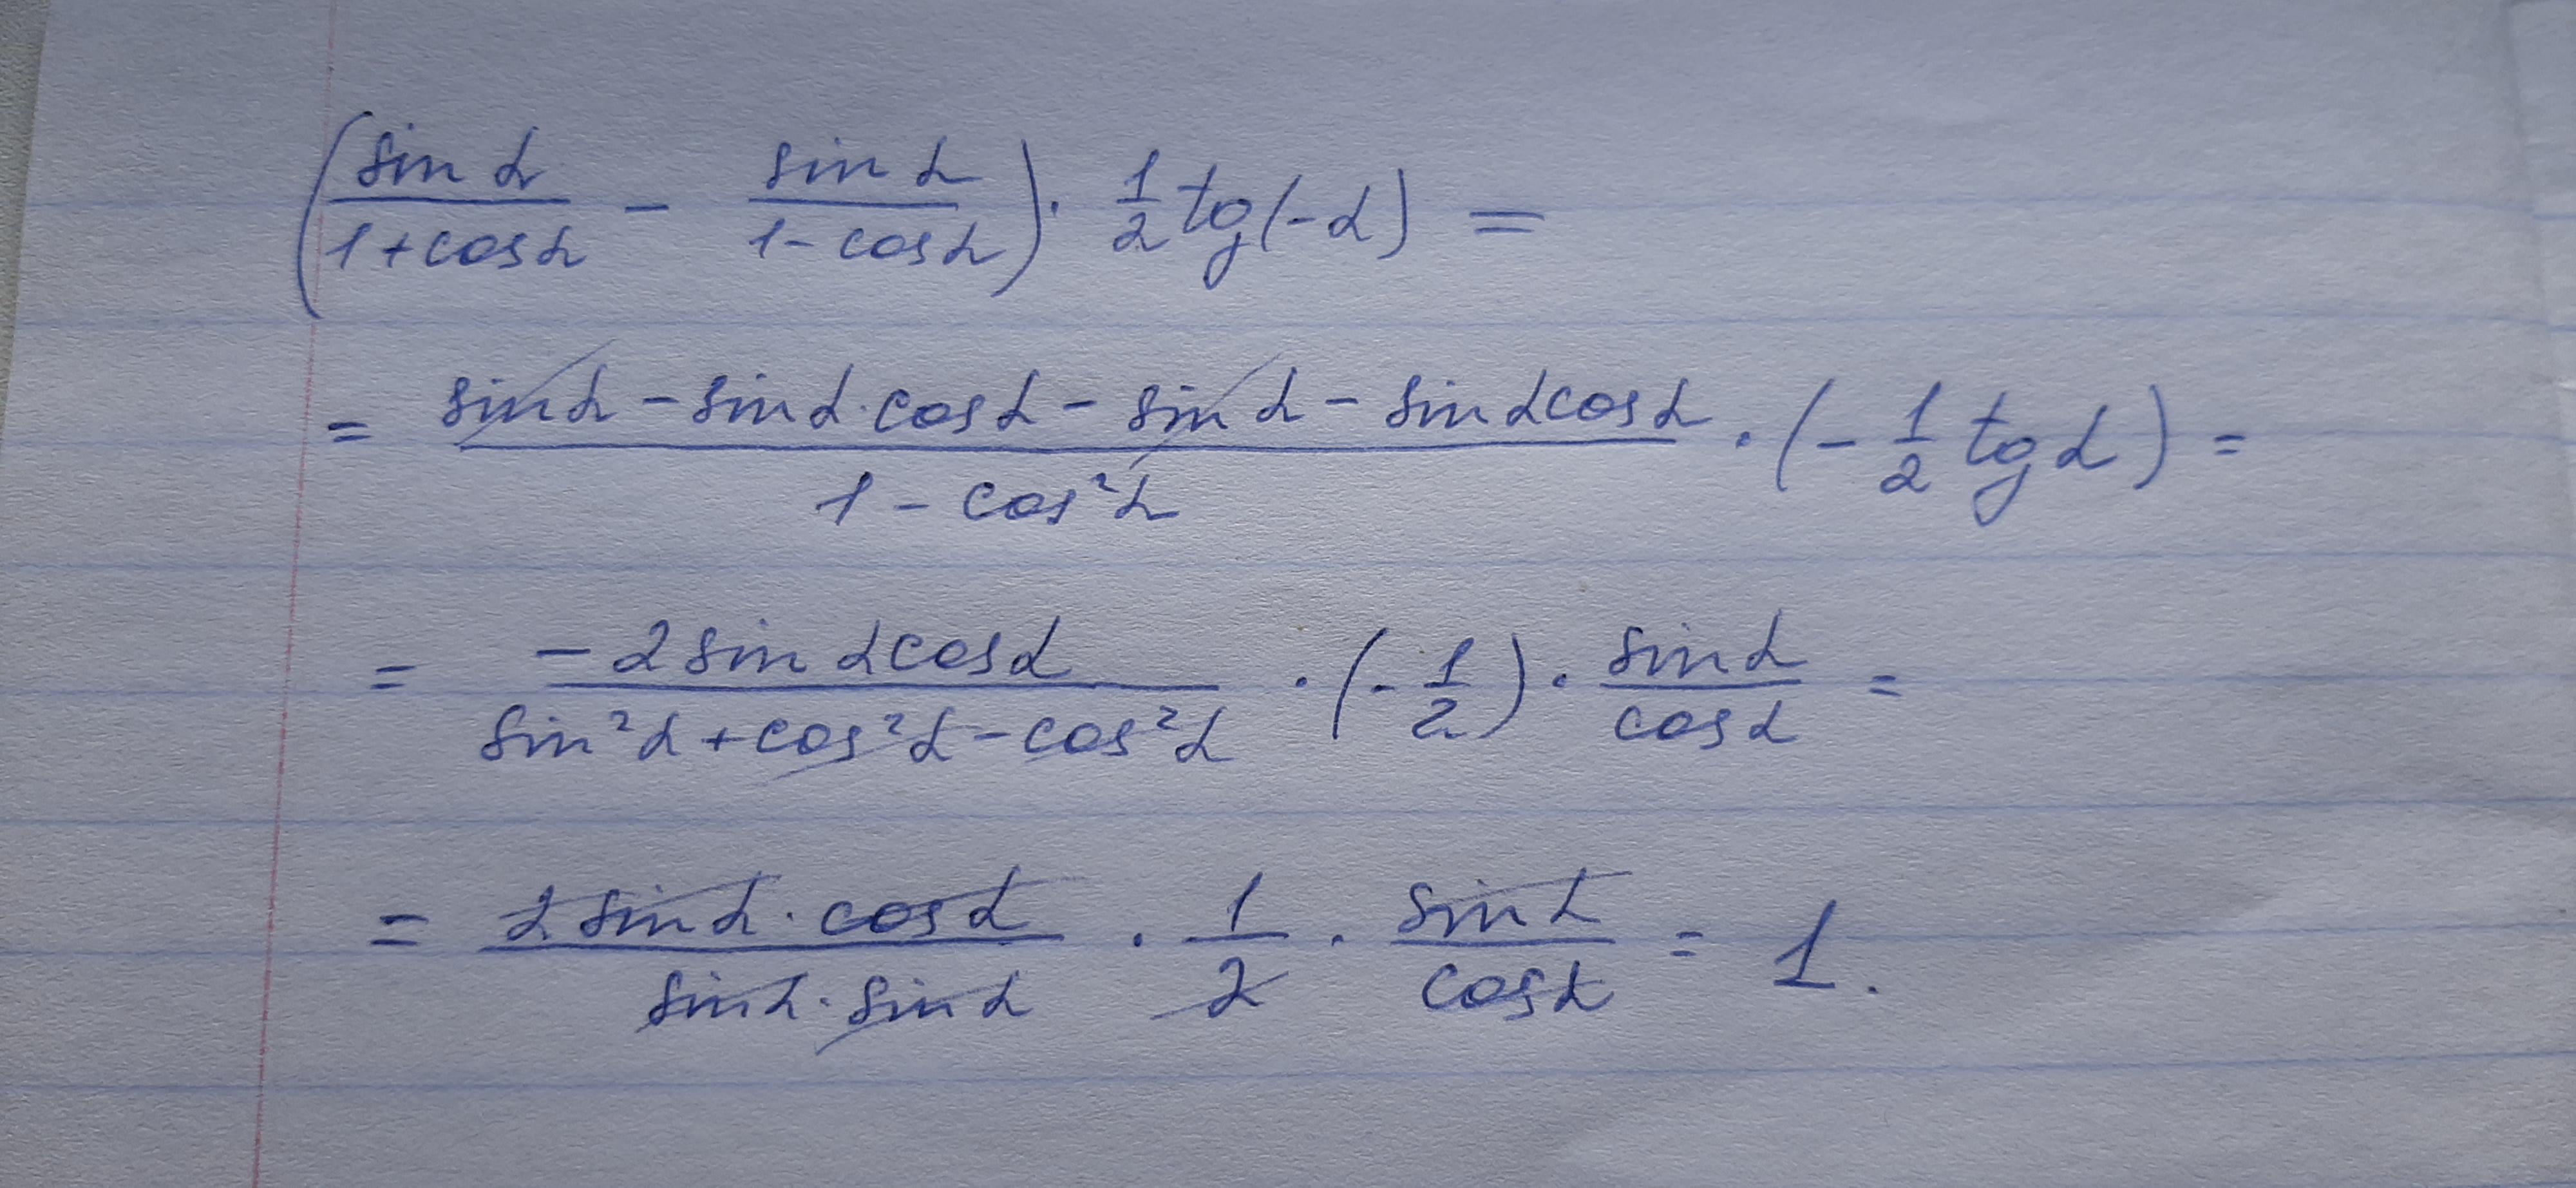 (sin α / (1 + cos α) − sin α / (1 − cos α)) · 1/2 tg(−α) =
= (sin α − sin α · cos α − sin α − sin α cos α) / (1 − cos²α) · (−1/2 tg α) =
= −2 sin α cos α / (sin²α + cos²α − cos²α) · (−1/2) · sin α / cos α =
= 2 sin α · cos α / (sin α · sin α) · 1/2 · sin α / cos α = 1.